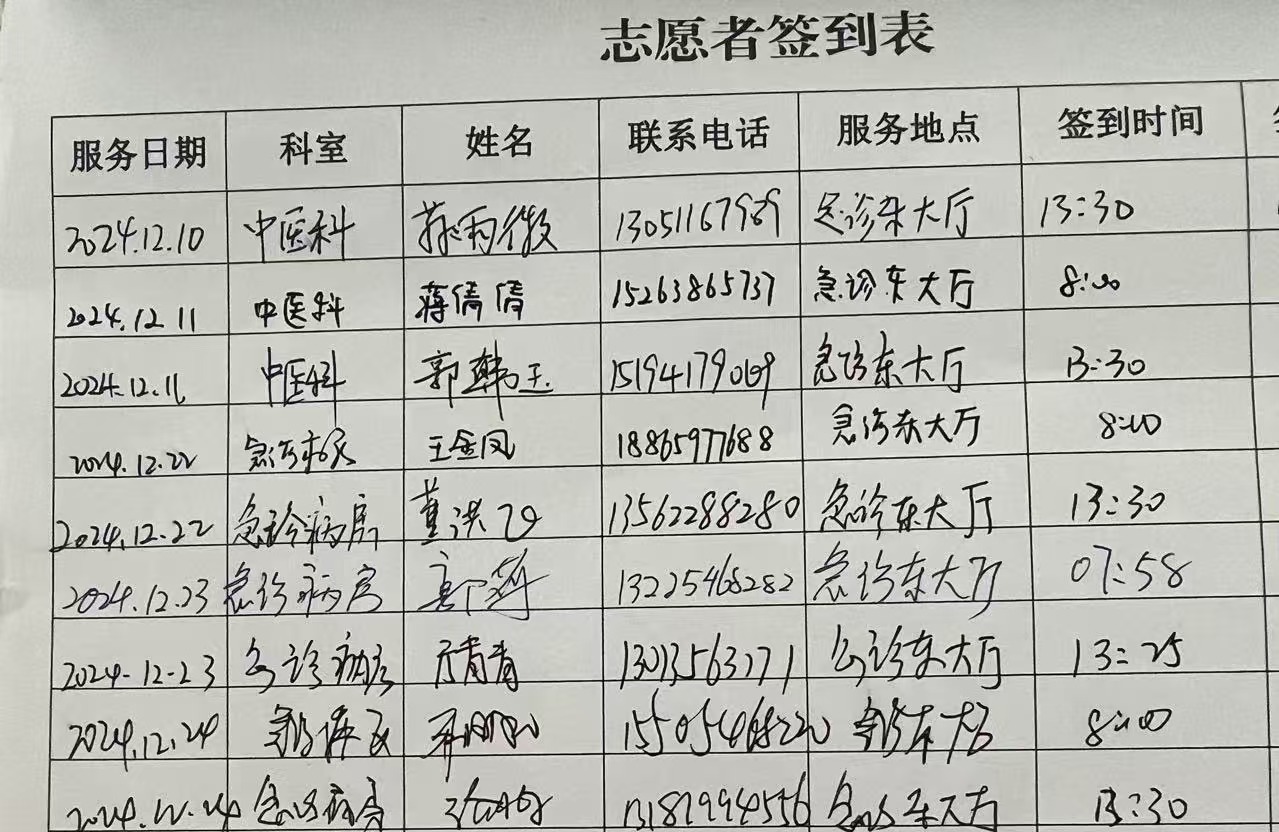 志愿者签到表
服务日期 科室 姓名 联系电话 服务地点 签到时间
2024.12.10 中医科 雨薇 13051167989 急诊东大厅 13:30
2024.12.11 中医科 蒋倩倩 15263865737 急诊东大厅 8:00
2024.12.11 中医科 郭韩玉 15194179069 急诊东大厅 13:30
2024.12.22 急诊病房 王金凤 18865977688 急诊东大厅 8:00
2024.12.22 急诊病房 董洪 13562288280 急诊东大厅 13:30
2024.12.23 急诊病房 13225468282 急诊东大厅 07:58
2024.12.23 急诊病房 青青 急诊东大厅 13:25
2024.12.24 急诊病房 15505468220 急诊东大厅 8:00
2024.12.24 急诊病房 急诊东大厅 13:30